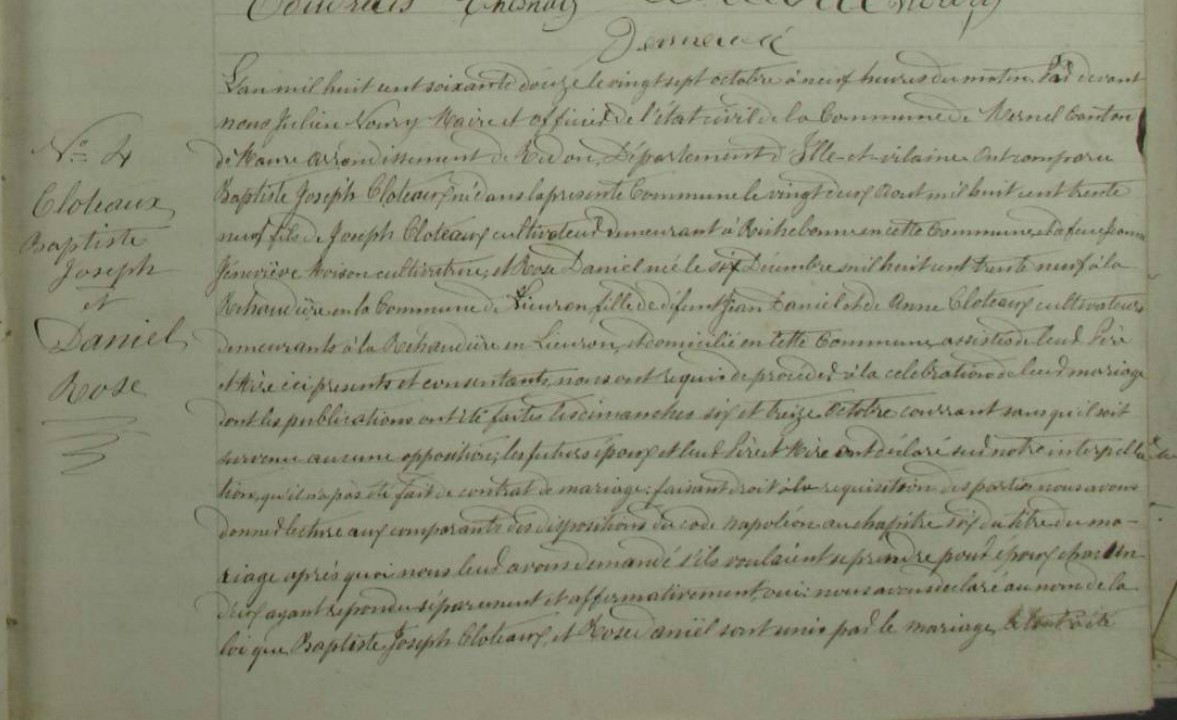 Thesnay
L'an mil huit cent soixante douze le vingt sept octobre à neuf heures du matin. Par devant
nous Julien Noury Maire et officier de l'état civil de la Commune de Mernel Canton
de Maure arrondissement de Redon, Département d'Ille-et-vilaine Ont comparu
Baptiste Joseph Cloteaux né dans la presente Commune le vingt deux Aout mil huit cent trente
neuf fils de Joseph Cloteaux cultivateur demeurant à Richebonne en cette Commune, et de feue Jeanne
Géneviève Moison cultivatrice, et Rose Daniel née le six Décembre mil huit cent trente neuf à la
Rehaudière en la Commune de Lieuron fille de défunt Jean Daniel et de Anne Cloteaux cultivateurs
demeurants à la Rehaudière en Lieuron, et domicilié en cette Commune, assistés de leur Père
et Mère ici presents et consentants, nous ont requis de proceder à la celebration de leur mariage
dont les publications ont été faites les dimanches six et treize Octobre courrant sans qu'il soit
survenu aucune opposition; les futurs époux et leur Père et Mère ont déclaré sur notre interpella
tion, qu'il n'a pas été fait de contrat de mariage: faisant droit à la requisition des parties nous avons
donner lecture aux comparants des dispositions du code Napoléon au chapitre six du titre du ma-
riage après quoi nous leur avons demandé s'ils voulaient se prendre pour époux chacun
d'eux ayant repondu séparement et affirmativement, oui: nous avons declaré au nom de la
loi que Baptiste Joseph Cloteaux, et Rose Daniel sont unis par le mariage, le tout a été
N° 4
Cloteaux
Baptiste
Joseph
et
Daniel
Rose